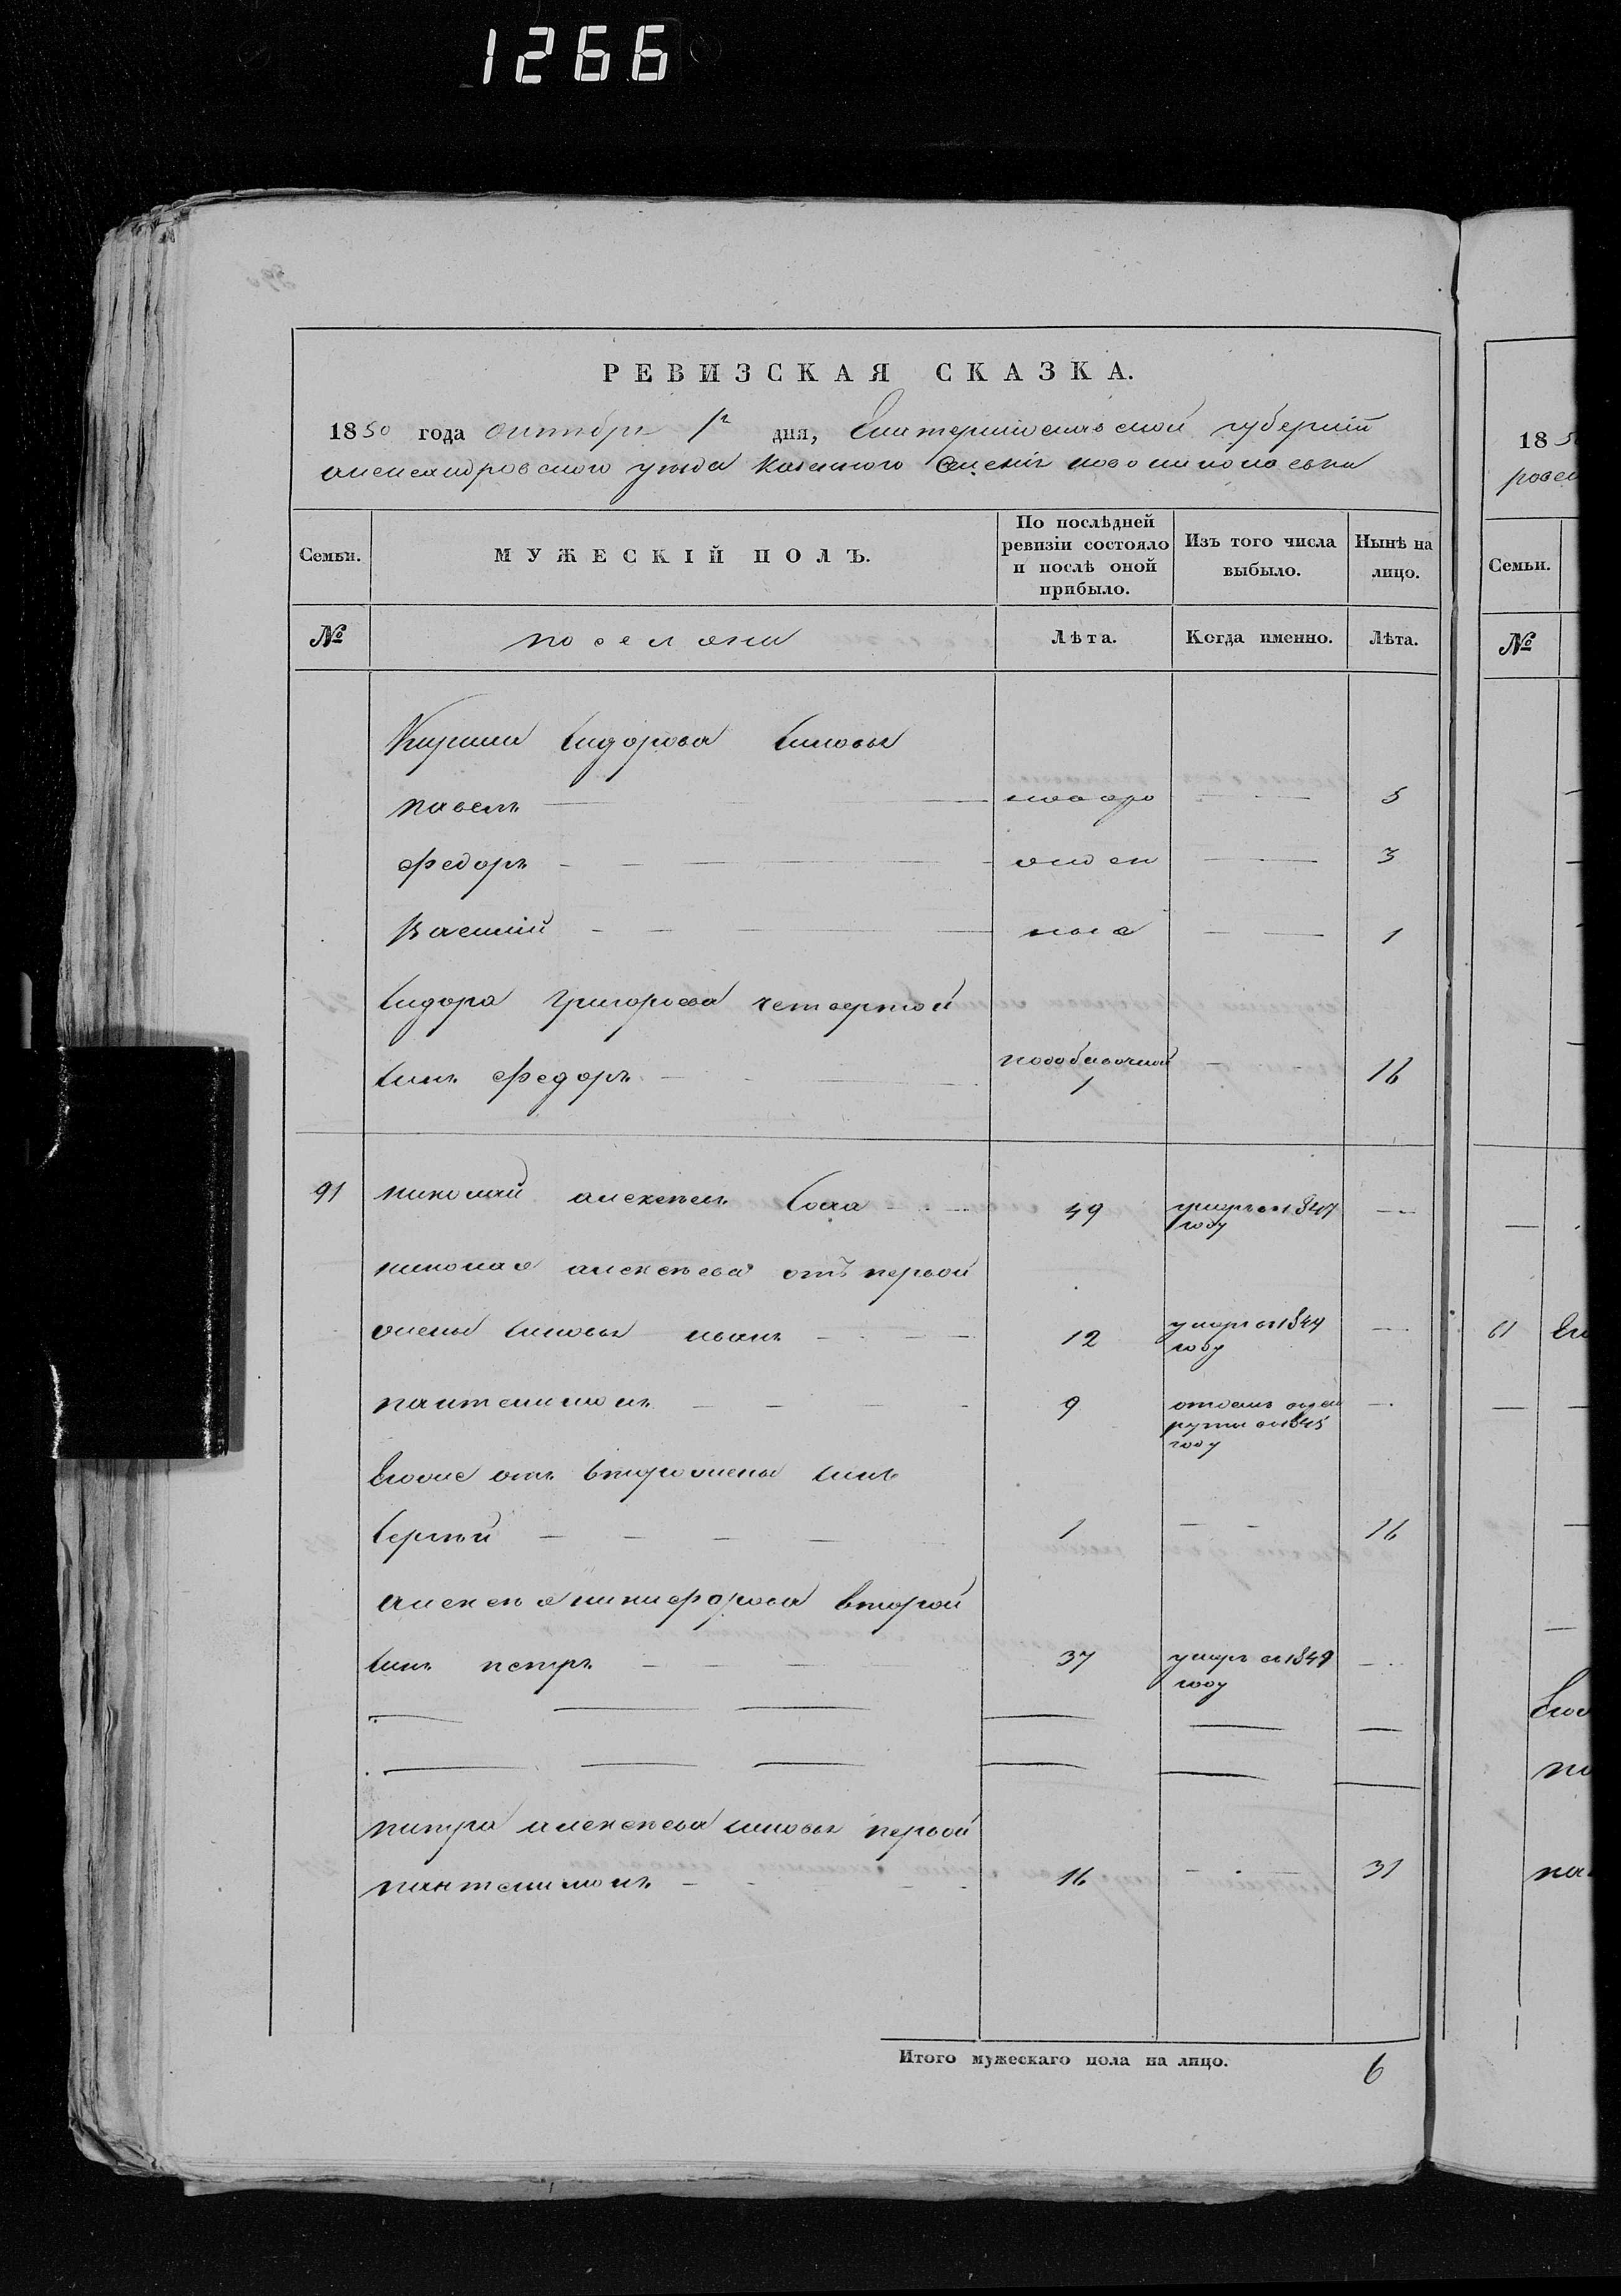 1266
РЕВИЗСКАЯ СКАЗКА.
1850 года октября 1го дня, Екатеринославской губерніи
александровского уезда казенного селенія новониколаевки
Семьи. МУЖЕСКІЙ ПОЛЪ. По послѣдней ревизіи состояло и послѣ оной прибыло. Изъ того числа выбыло. Нынѣ на лицо.
№ поселяне Лѣта. Когда именно. Лѣта.
Сидорова сыновья
павелъ новоро 5
федоръ жден 3
Василій ные 1
Сидора Григорьева четвертой
сынъ федоръ 1 16
91 николай алексеевъ 49 умеръ в 1847 году
николая алексеева отъ первой
жены сыновья иванъ 12 умеръ в 1844 году
пантелимонъ 9 в 1845 году
Сергѣй 1 16
алексея никифорова второй
сынъ петръ 37 умеръ в 1849 году
петра алексеева сыновья первой
пантелимонъ 16 31
Итого мужескаго пола на лицо. 6
18
Семьи.
№
61